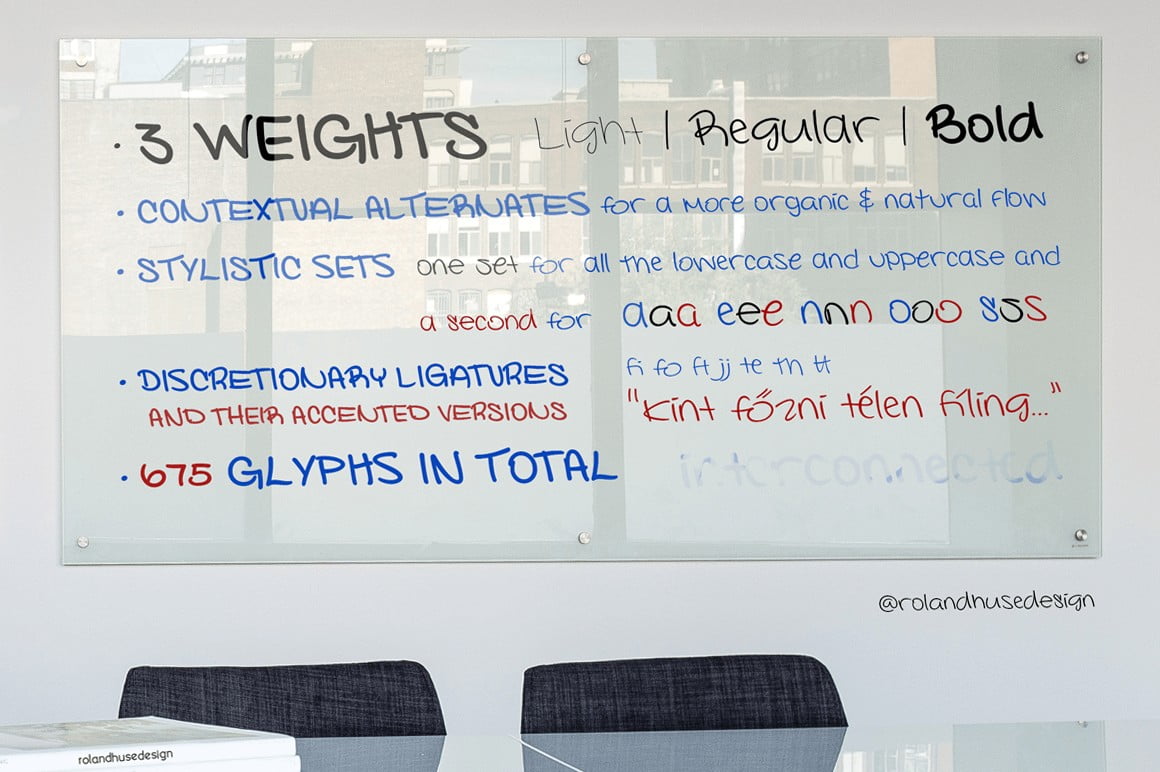 · 3 WEIGHTS Light | Regular | Bold
· CONTEXTUAL ALTERNATES for a more organic & natural flow
· STYLISTIC SETS one set for all the lowercase and uppercase and
a second for aaa eee nnn ooo sss
· DISCRETIONARY LIGATURES fi fo ft jj te th tt
AND THEIR ACCENTED VERSIONS "Kint főzni télen fíling..."
· 675 GLYPHS IN TOTAL interconnected
@rolandhusedesign
rolandhusedesign